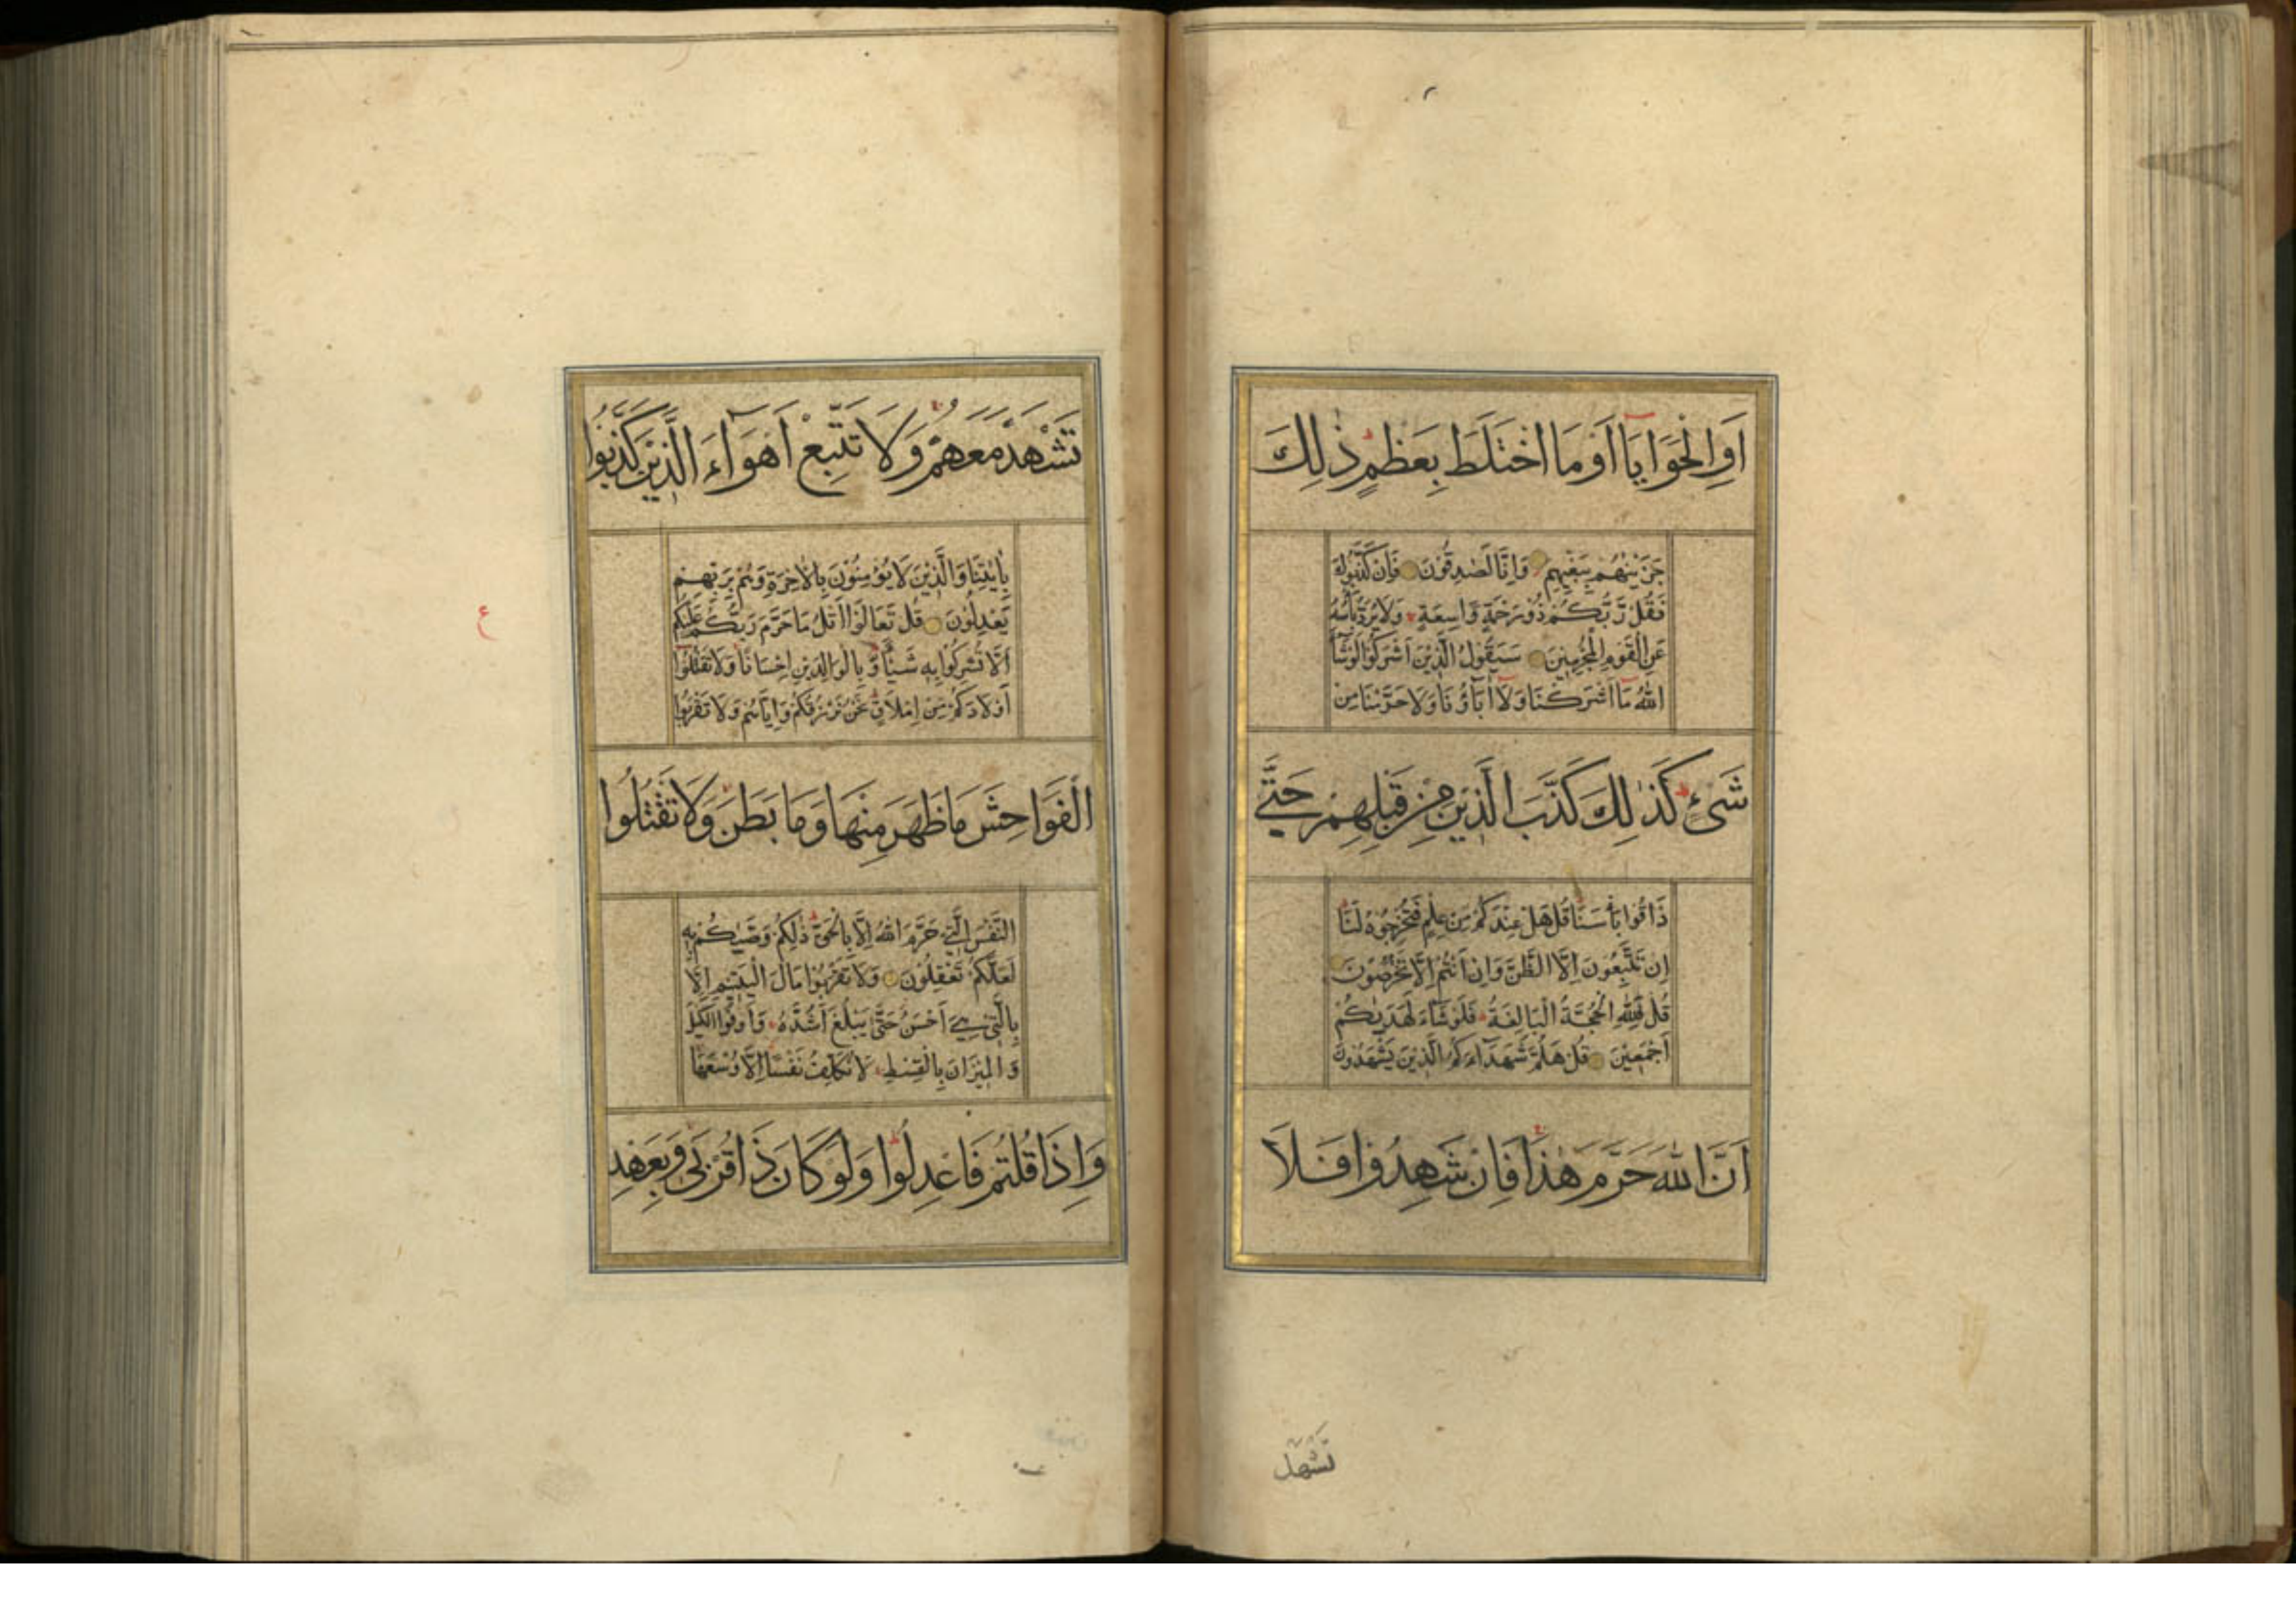 اَوِالْحَوَايَآ اَوْمَا اخْتَلَطَ بِعَظْمٍ ذٰلِكَ
جَزَيْنٰهُمْ بِبَغْيِهِمْ وَاِنَّا لَصٰدِقُوْنَ فَاِنْ كَذَّبُوْكَ
فَقُلْ رَّبُّكُمْ ذُوْ رَحْمَةٍ وَّاسِعَةٍ وَلَا يُرَدُّ بَأْسُهُ
عَنِ الْقَوْمِ الْمُجْرِمِيْنَ سَيَقُوْلُ الَّذِيْنَ اَشْرَكُوْا لَوْ شَآءَ
اللهُ مَآ اَشْرَكْنَا وَلَآ اٰبَآؤُنَا وَلَا حَرَّمْنَا مِنْ
شَىْءٍ كَذٰلِكَ كَذَّبَ الَّذِيْنَ مِنْ قَبْلِهِمْ حَتّٰى
ذَاقُوْا بَأْسَنَا قُلْ هَلْ عِنْدَكُمْ مِنْ عِلْمٍ فَتُخْرِجُوْهُ لَنَا
اِنْ تَتَّبِعُوْنَ اِلَّا الظَّنَّ وَاِنْ اَنْتُمْ اِلَّا تَخْرُصُوْنَ
قُلْ فَلِلّٰهِ الْحُجَّةُ الْبَالِغَةُ فَلَوْ شَآءَ لَهَدٰىكُمْ
اَجْمَعِيْنَ قُلْ هَلُمَّ شُهَدَآءَكُمُ الَّذِيْنَ يَشْهَدُوْنَ
اَنَّ اللهَ حَرَّمَ هٰذَا فَاِنْ شَهِدُوْا فَلَا
تَشْهَدْ
تَشْهَدْ مَعَهُمْ وَلَا تَتَّبِعْ اَهْوَآءَ الَّذِيْنَ كَذَّبُوْا
بِاٰيٰتِنَا وَالَّذِيْنَ لَا يُؤْمِنُوْنَ بِالْاٰخِرَةِ وَهُمْ بِرَبِّهِمْ
يَعْدِلُوْنَ قُلْ تَعَالَوْا اَتْلُ مَا حَرَّمَ رَبُّكُمْ عَلَيْكُمْ
ع
اَلَّا تُشْرِكُوْا بِهٖ شَيْئًا وَّبِالْوَالِدَيْنِ اِحْسَانًا وَلَا تَقْتُلُوْا
اَوْلَادَكُمْ مِنْ اِمْلَاقٍ نَحْنُ نَرْزُقُكُمْ وَاِيَّاهُمْ وَلَا تَقْرَبُوا
الْفَوَاحِشَ مَا ظَهَرَ مِنْهَا وَمَا بَطَنَ وَلَا تَقْتُلُوا
النَّفْسَ الَّتِيْ حَرَّمَ اللهُ اِلَّا بِالْحَقِّ ذٰلِكُمْ وَصّٰىكُمْ بِهٖ
لَعَلَّكُمْ تَعْقِلُوْنَ وَلَا تَقْرَبُوْا مَالَ الْيَتِيْمِ اِلَّا
بِالَّتِيْ هِىَ اَحْسَنُ حَتّٰى يَبْلُغَ اَشُدَّهُ وَاَوْفُوا الْكَيْلَ
وَالْمِيْزَانَ بِالْقِسْطِ لَا نُكَلِّفُ نَفْسًا اِلَّا وُسْعَهَا
وَاِذَا قُلْتُمْ فَاعْدِلُوْا وَلَوْ كَانَ ذَا قُرْبٰى وَبِعَهْدِ